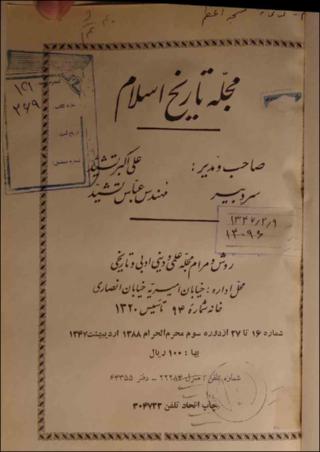 مجله تاریخ اسلام
صاحب و مدیر : علی اکبر تشید
سردبیر مهندس عباس تشید
۱۳۴۷/۲/۹
روش و مرام مجله علمی و دینی ادبی و تاریخی
محل اداره : خیابان امیریه خیابان انصاری
خانه شماره ۹۴ تأسیس ۱۳۲۰
شماره ۱۶ تا ۲۷ از دوره سوم محرم الحرام ۱۳۸۸ اردیبهشت ۱۳۴۷
بها : ۱۰۰ ریال
شماره تلفن : منزل ۲۲۲۸۴ - دفتر ۶۴۳۵۵
چاپ اتحاد تلفن ۳۰۴۷۳۳